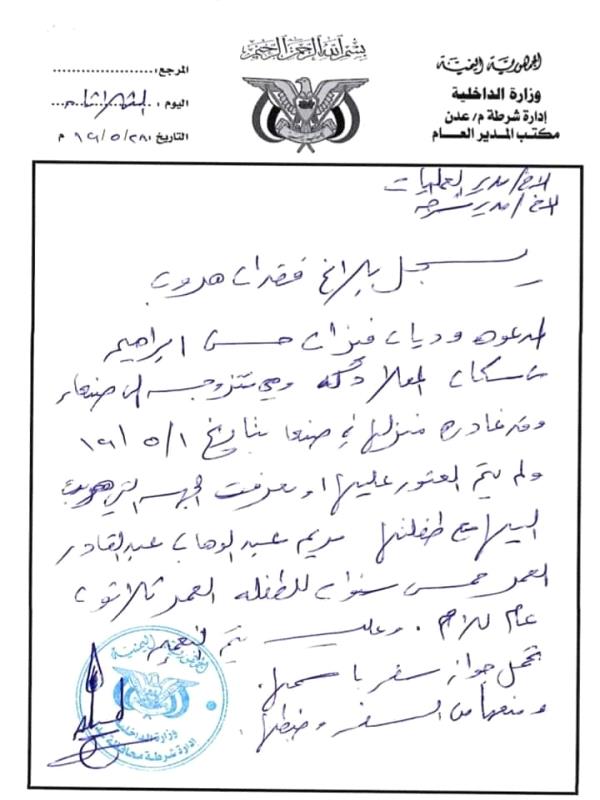 بسم الله الرحمن الرحيم
الجمهورية اليمنية
وزارة الداخلية
إدارة شرطة م/عدن
مكتب المدير العام
المرجع:
اليوم:
التاريخ: ٢٨/٥/١٩م
الاخ/مدير العمليات
الاخ/مدير شرطة
يسجل بلاغ فقدان هروب
المدعوه وديان فيزان حسن ابراهيم
من سكان المعلا دكه وهي متزوجه الى صنعاء
وقد غادره منزلها في صنعا بتاريخ ١/٥/١٩
ولم يتم العثور عليها او معرفت الجهه التي هروبت
اليها مع طفلتها مريم عبدالوهاب عبدالقادر
العمر خمس سنوات للطفله العمر ثلاثون
عام للام. وعليه يتم التعميم
تحمل جواز سفر باسمها.
ومنعها من السفر وضبطها.
الجمهورية اليمنية
وزارة الداخلية
إدارة شرطة محافظة